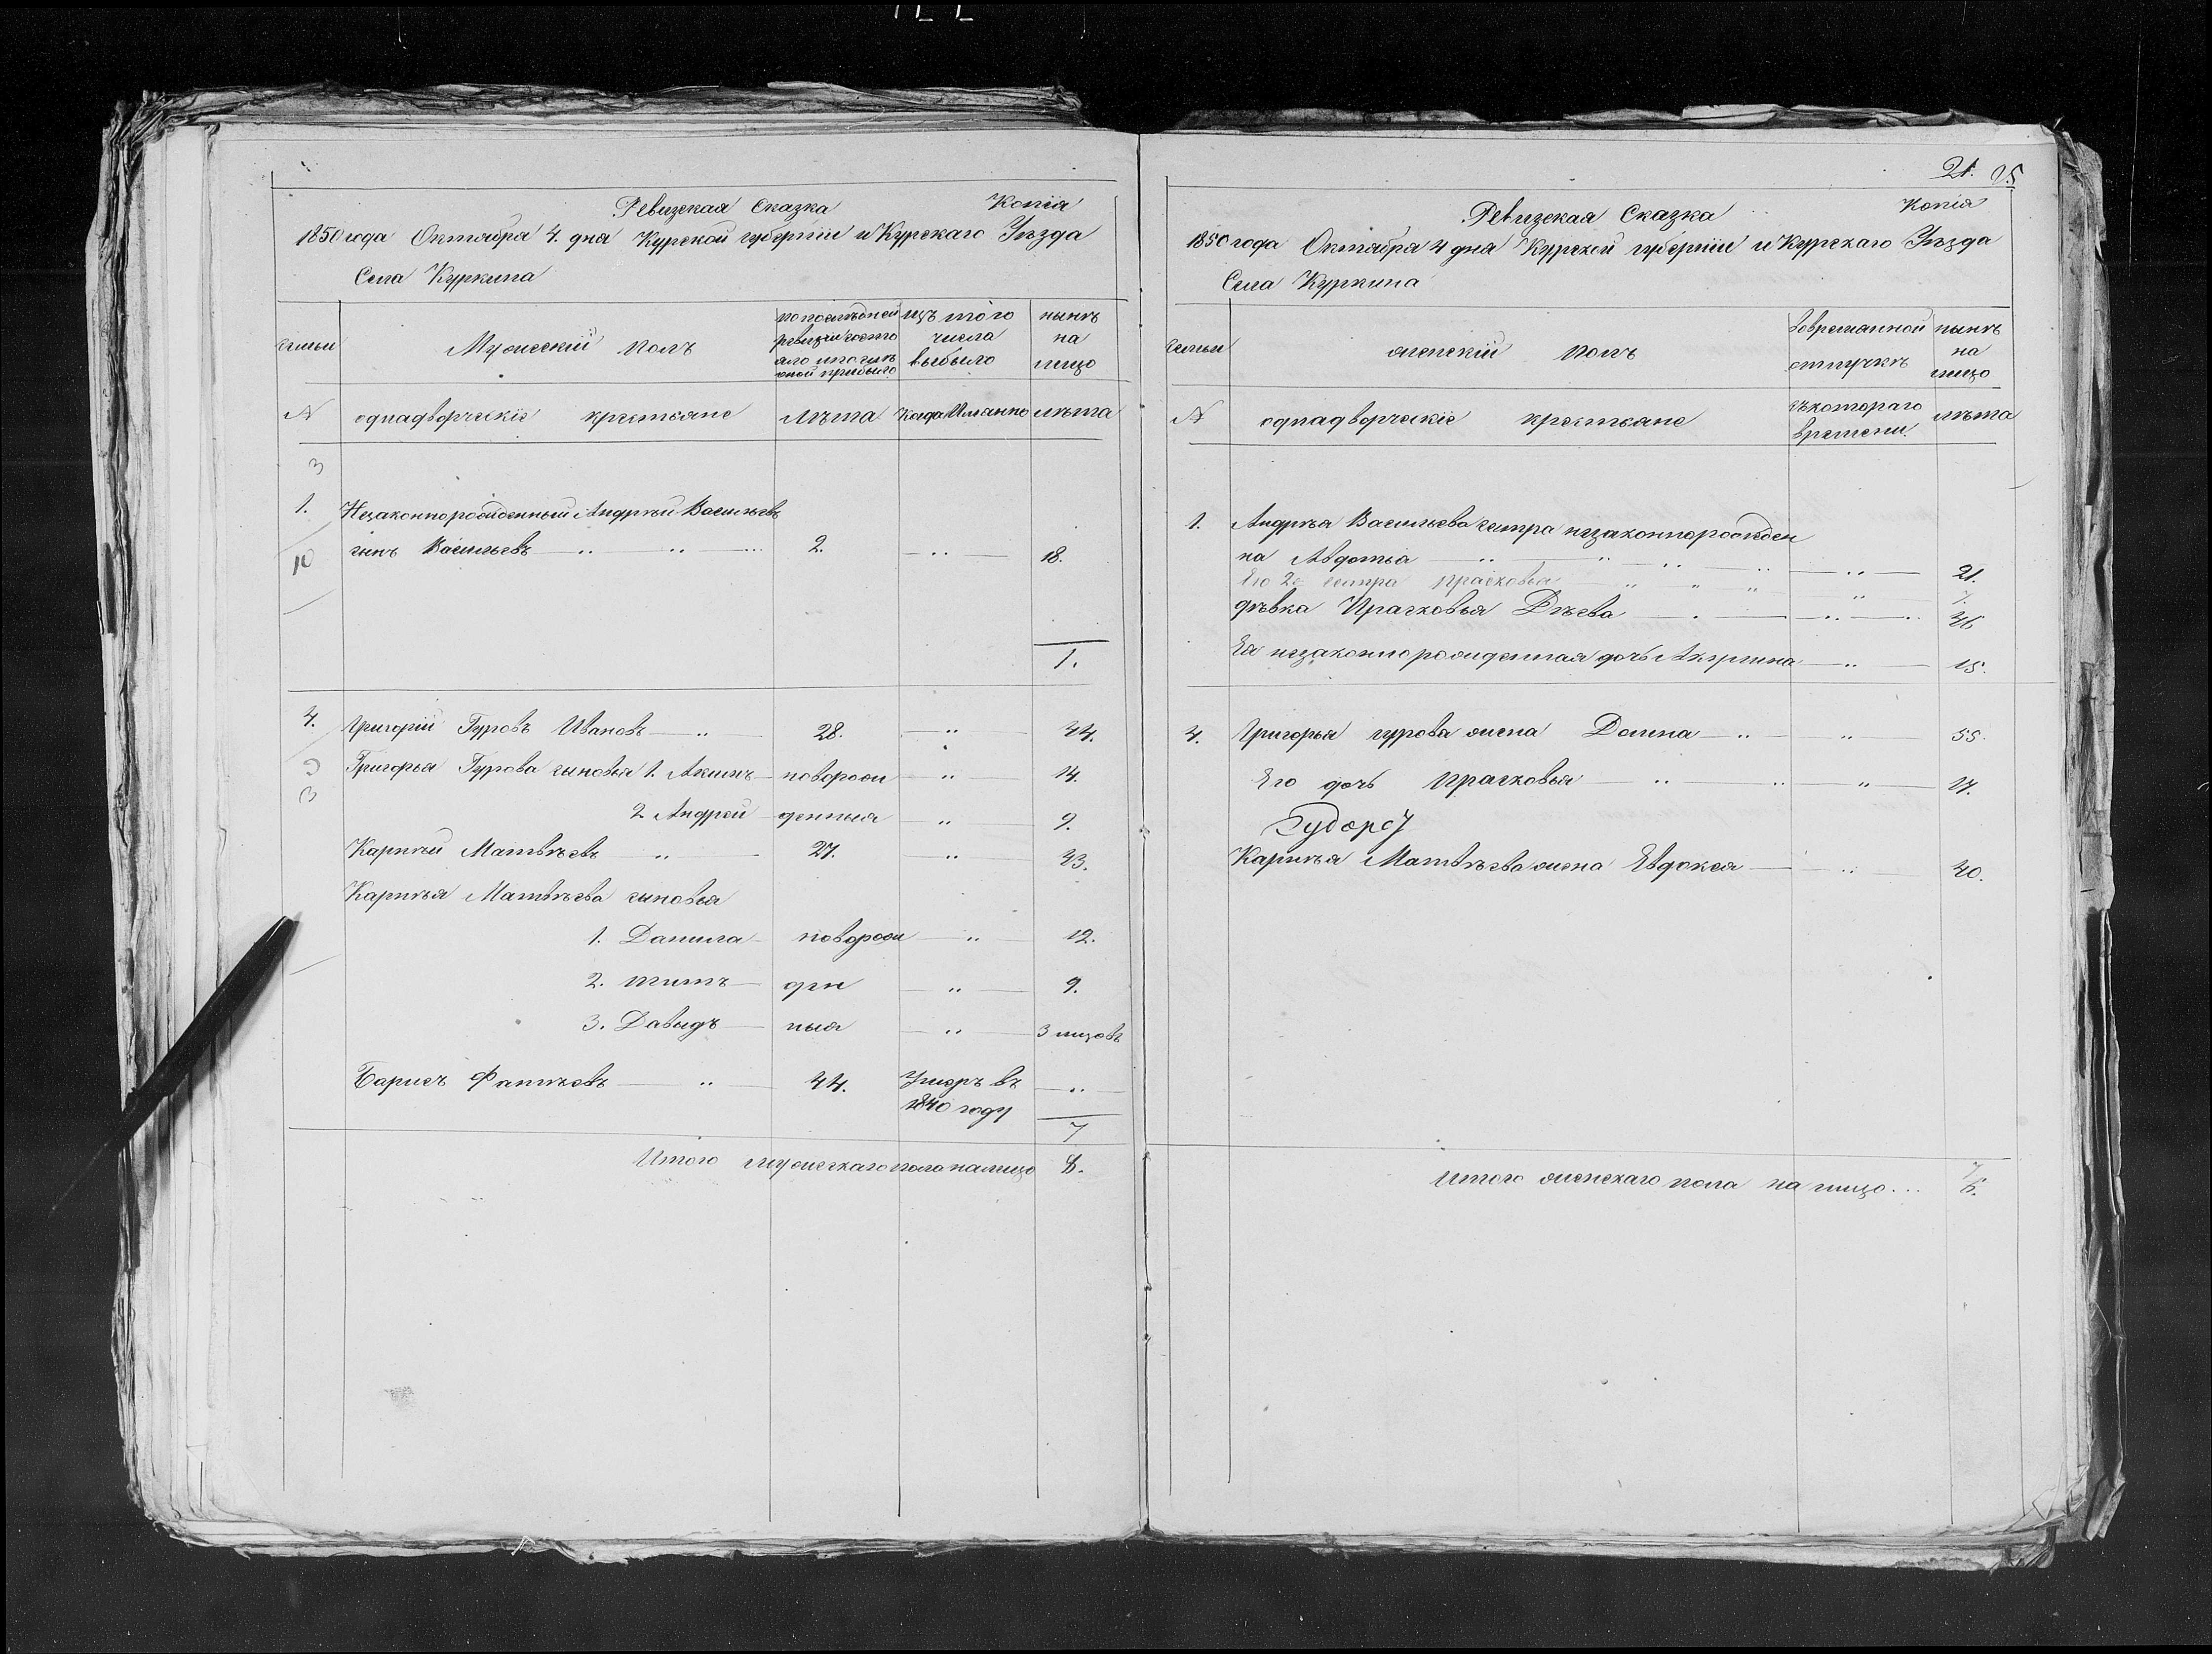 Ревизская Сказка Копія
1850 года Октября 4. дня Курской губерніи и Курскаго Уѣзда
Села Куркина
семьи
Мужескій полъ
по послѣдней ревизіи состояло или послѣ оной прибыло
изъ того числа выбыло
нынѣ на лицо
№ однадворческіе крестьяне лѣта Когда Именно лѣта
3
1. Незаконнорожденный Андрѣй Васильевъ
10 сынъ Васильевъ 2. 18.
1.
4. Григорій Гуровъ Ивановъ 28. 44.
Григорья Гурова сыновья 1. Акимъ новорож 14.
3
2 Андрей денныя 9.
Карпѣй Матвѣевъ 27. 43.
Карпѣя Матвѣева сыновья
1. Данила новорож 12.
2. титъ ден 9.
3. Давыдъ ныя 3 мицовъ
Барисъ Фатѣевъ 44. Умеръ въ
1840 году
7
Итого мужескаго пола налицо 8.
21. 25
Ревизская Сказка Копія
1850 года Октября 4 дня Курской губерніи и Курскаго Уѣзда
Села Куркина
семьи
женскій полъ
во временной отлучкѣ
нынѣ на лицо
№ однадворческіе крестьяне съ котораго времени. лѣта
1. Андрѣя Васильева сестра незаконнорожден
на Авдотья 21.
Его 2я сестра прасковья 7.
дѣвка Прасковья Дѣева 46
Ея незаконнорожденная дочь Акулина 15.
4. Григорья гурова жена Домна 55.
Его дочь прасковья 17.
Карпѣя Матвѣева жена Евдокея 40.
Итого женскаго пола на лицо... 7
6.